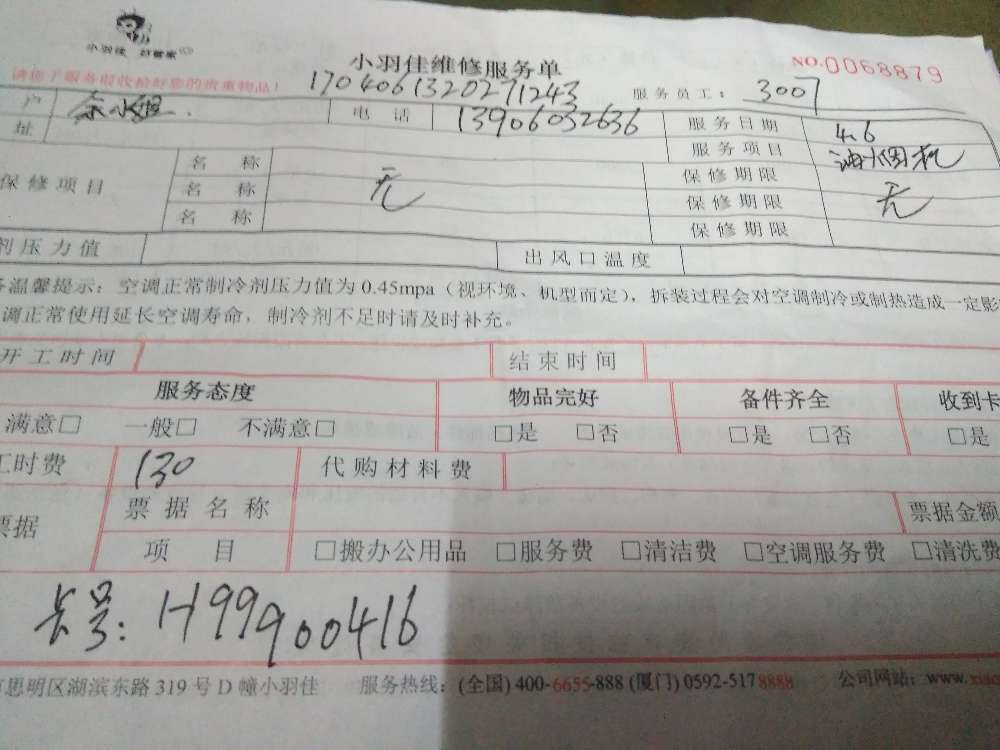 小羽佳 好管家
小羽佳维修服务单
NO.0068879
请您于服务前收拾好您的贵重物品!
1704061320271243
服务员工: 3007
户 电话 13906032636 服务日期 4.6
址 服务项目 油烟机
保修项目 名称 无 保修期限 无
名称 保修期限
名称 保修期限
剂压力值 出风口温度
温馨提示:空调正常制冷剂压力值为 0.45mpa(视环境、机型而定),拆装过程会对空调制冷或制热造成一定影
调正常使用延长空调寿命,制冷剂不足时请及时补充。
开工时间 结束时间
服务态度 物品完好 备件齐全 收到卡
满意□ 一般□ 不满意□ □是 □否 □是 □否 □是
工时费 130 代购材料费
票据 票据名称 票据金额
项目 □搬办公用品 □服务费 □清洁费 □空调服务费 □清洗费
卡号: H999900416
思明区湖滨东路 319 号 D 幢小羽佳 服务热线: (全国) 400-6655-888 (厦门) 0592-5178888 公司网站: www.xiao